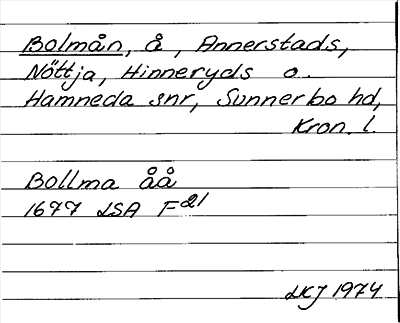 Bolmån, å, Annerstads,
Nöttja, Hinneryds o.
Hamneda snr, Sunnerbo hd,
Kron. l.
Bollma åå
1677 LSA F21
LKJ 1974